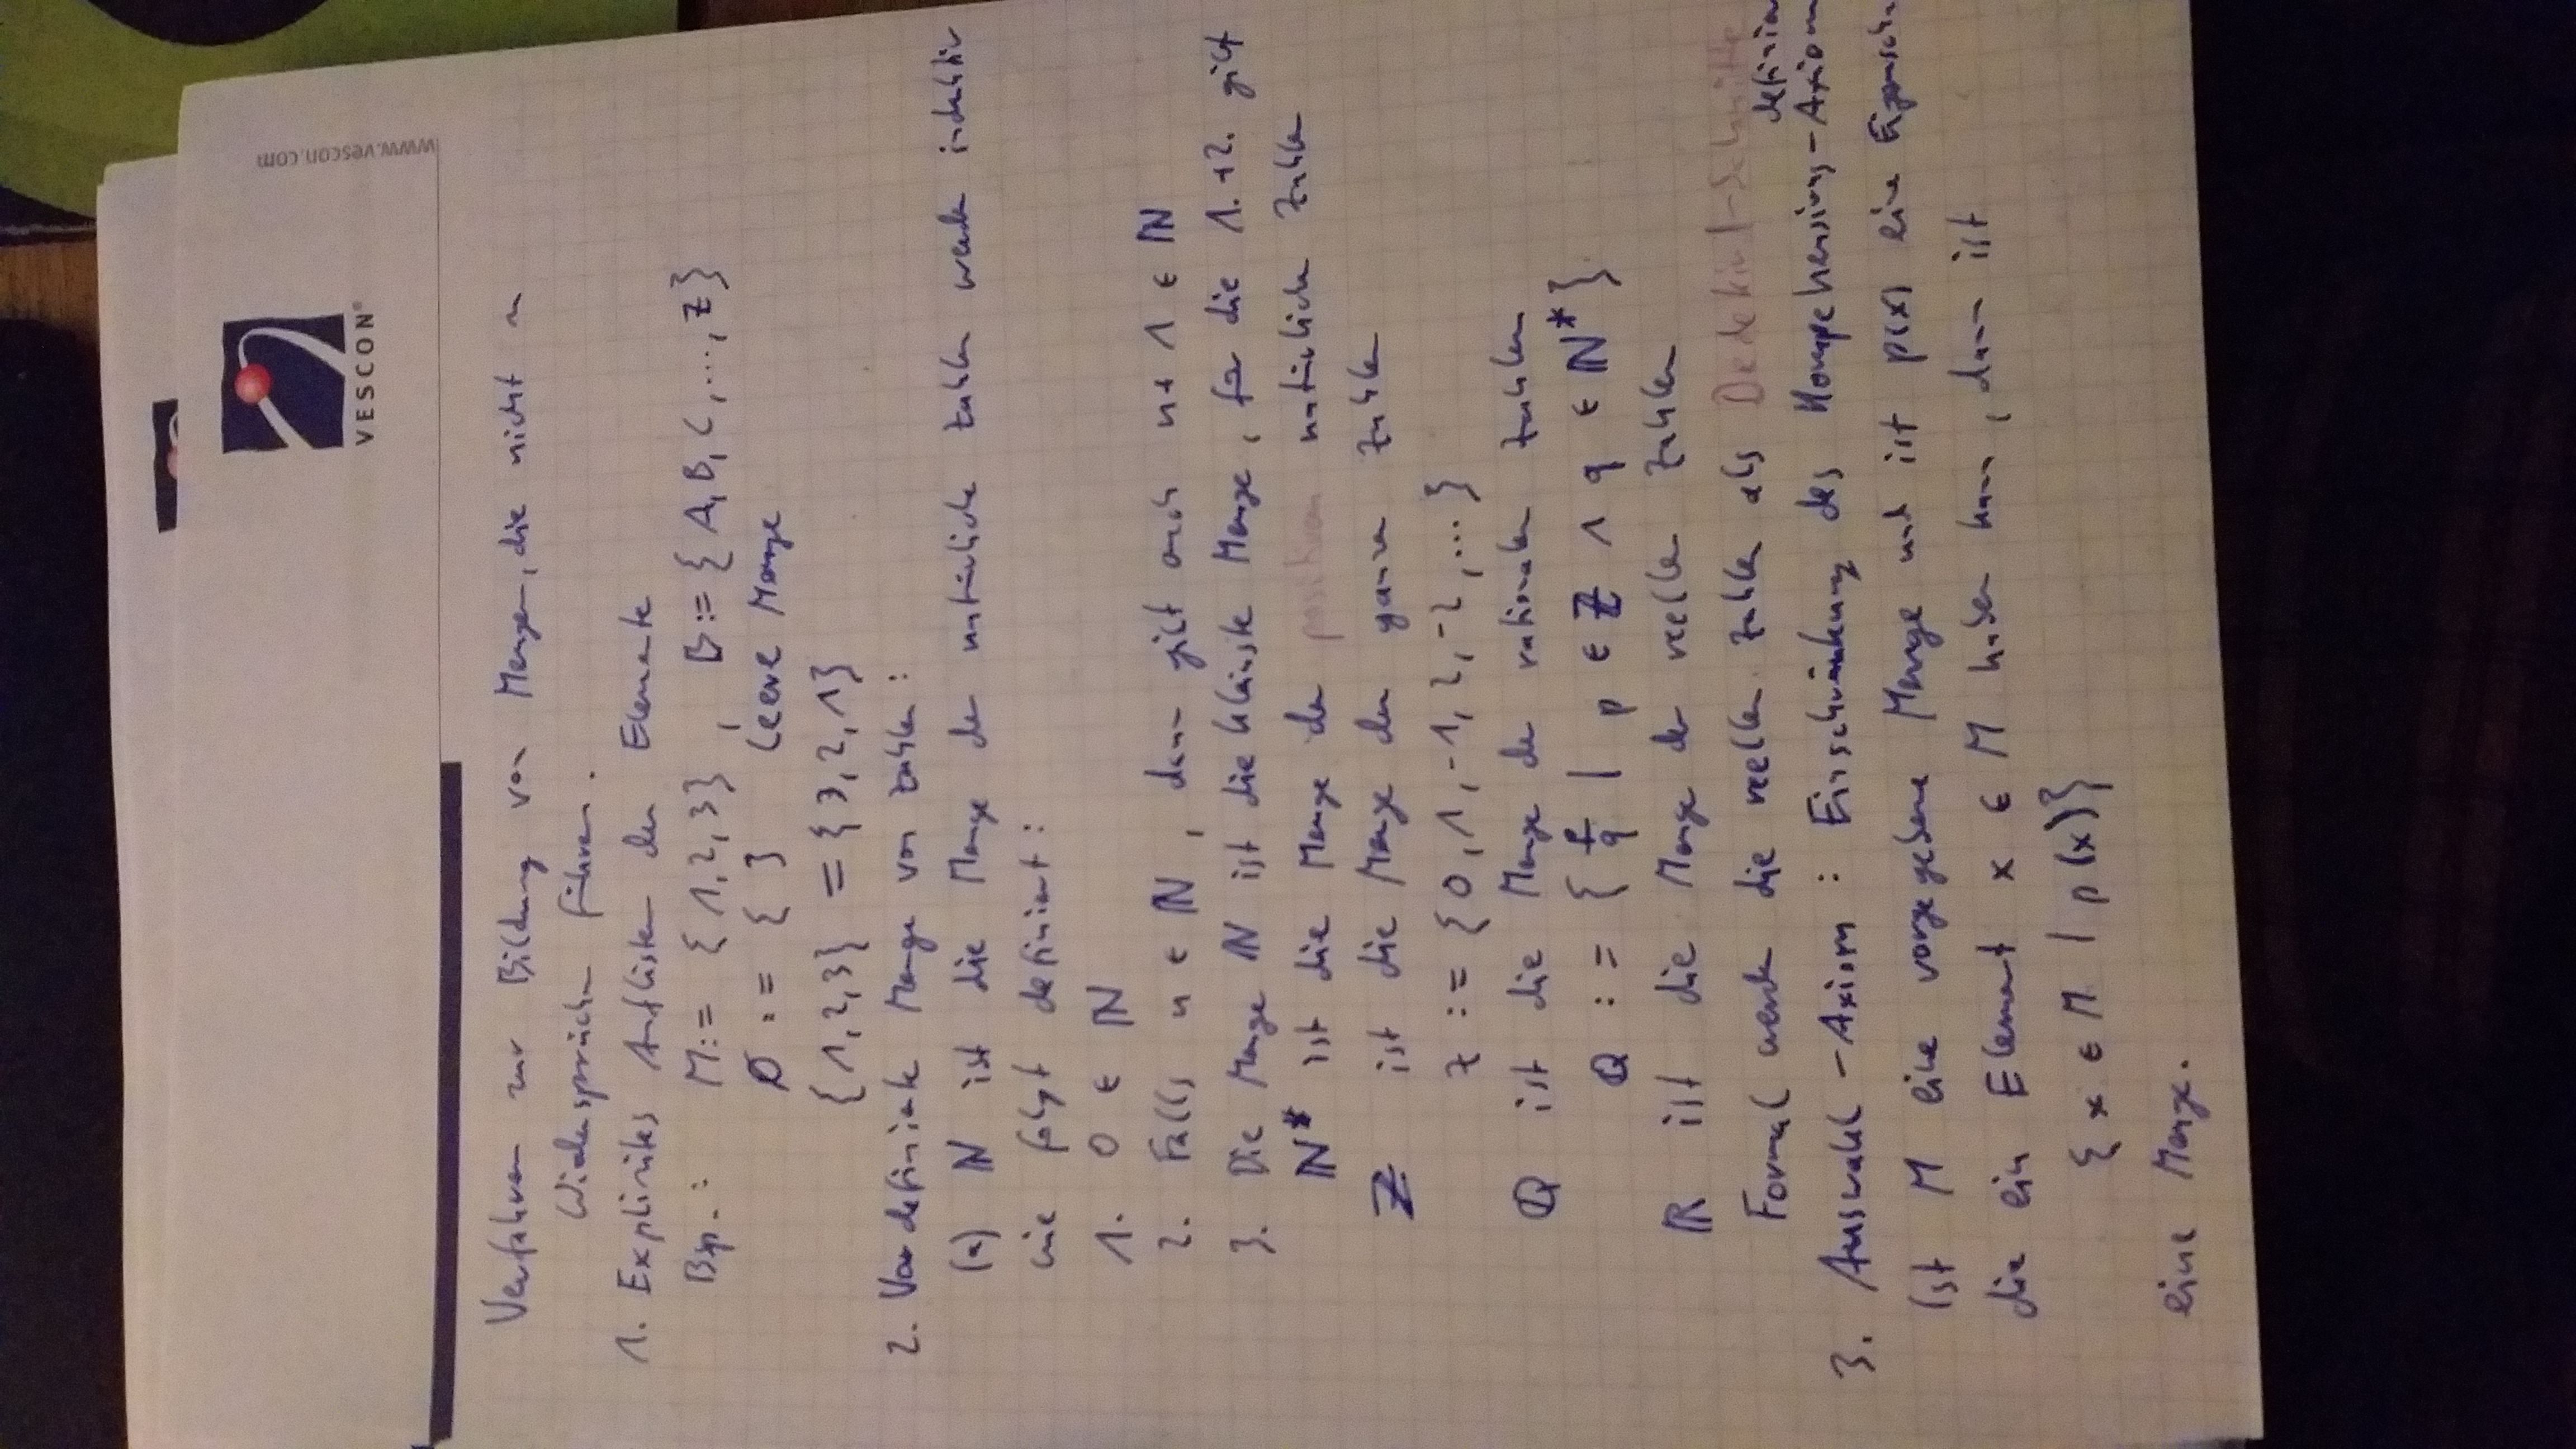 VESCON®
www.vescon.com
Verfahren zur Bildung von Mengen, die nicht zu
Widersprüchen führen.
1. Explizites Auflisten der Elemente
Bsp.: M := {1,2,3}, B := {A, B, C, ..., Z}
∅ := { } leere Menge
{1,2,3} = {3,2,1}
2. Vordefinierte Menge von Zahlen:
(a) ℕ ist die Menge der natürliche Zahlen werden induktiv
wie folgt definiert:
1. 0 ∈ ℕ
2. Falls n ∈ ℕ, dann gilt auch n+1 ∈ ℕ
3. Die Menge ℕ ist die kleinste Menge, für die 1.+2. gilt
ℕ* ist die Menge der positiven natürlichen Zahlen
ℤ ist die Menge der ganzen Zahlen
Z := {0, 1, -1, 2, -2, ...}
ℚ ist die Menge der rationalen Zahlen
ℚ := { p/q | p ∈ ℤ ∧ q ∈ ℕ* }
ℝ ist die Menge der reellen Zahlen
Formal werden die reellen Zahlen als Dedekind-Schnitte
definier
3. Auswahl-Axiom: Einschränkung des Komprehensions-Axiom
Ist M eine vorgegebene Menge und ist p(x) eine Eigensch
die ein Element x ∈ M haben kann, dann ist
{x ∈ M | p(x)}
eine Menge.